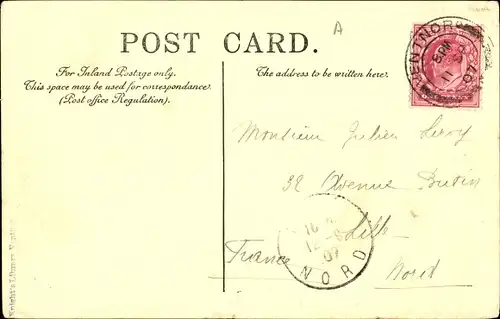 A
POST CARD.
For Inland Postage only.
This space may be used for correspondance
(Post office Regulation).
The address to be written here.
VENTNOR
11
07
Monsieur Julien Leroy
32 Avenue Butin
Lille
France
Nord
07
NORD
Knight's Library